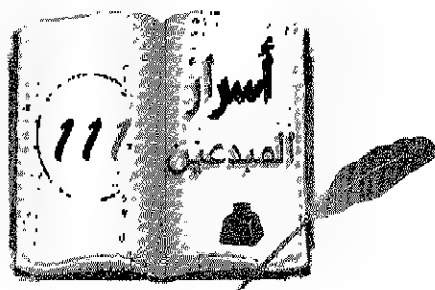 111
أسرار
المبدعين